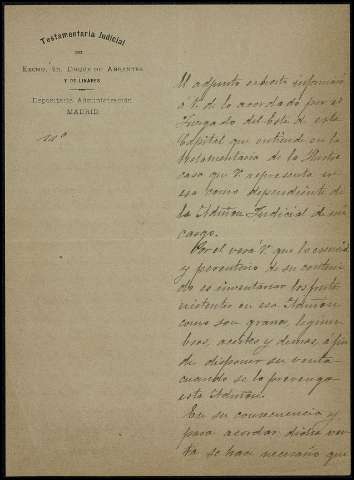 Testamentaria Judicial
DEL
EXCMO. SR. DUQUE DE ABRANTES
Y DE LINARES
Depositaría Administración
MADRID
N.º
El adjunto exhorto informará
á V. de lo acordado por el
Juzgado del Este de esta
Capital que entiende en la
testamentaria de la
casa que V. representa en
esa como dependiente de
la Admon Judicial de mi
cargo.
Por él verá V. que lo esencial
y perentorio de su conteni
do es inventariar los frutos
existentes en esa Admon
como son granos, legum
bres, aceites y demas, á fin
de disponer su venta
cuando se lo prevenga
esta Admon.
En su consecuencia y
para acordar dicha ven
ta se hace necesario que